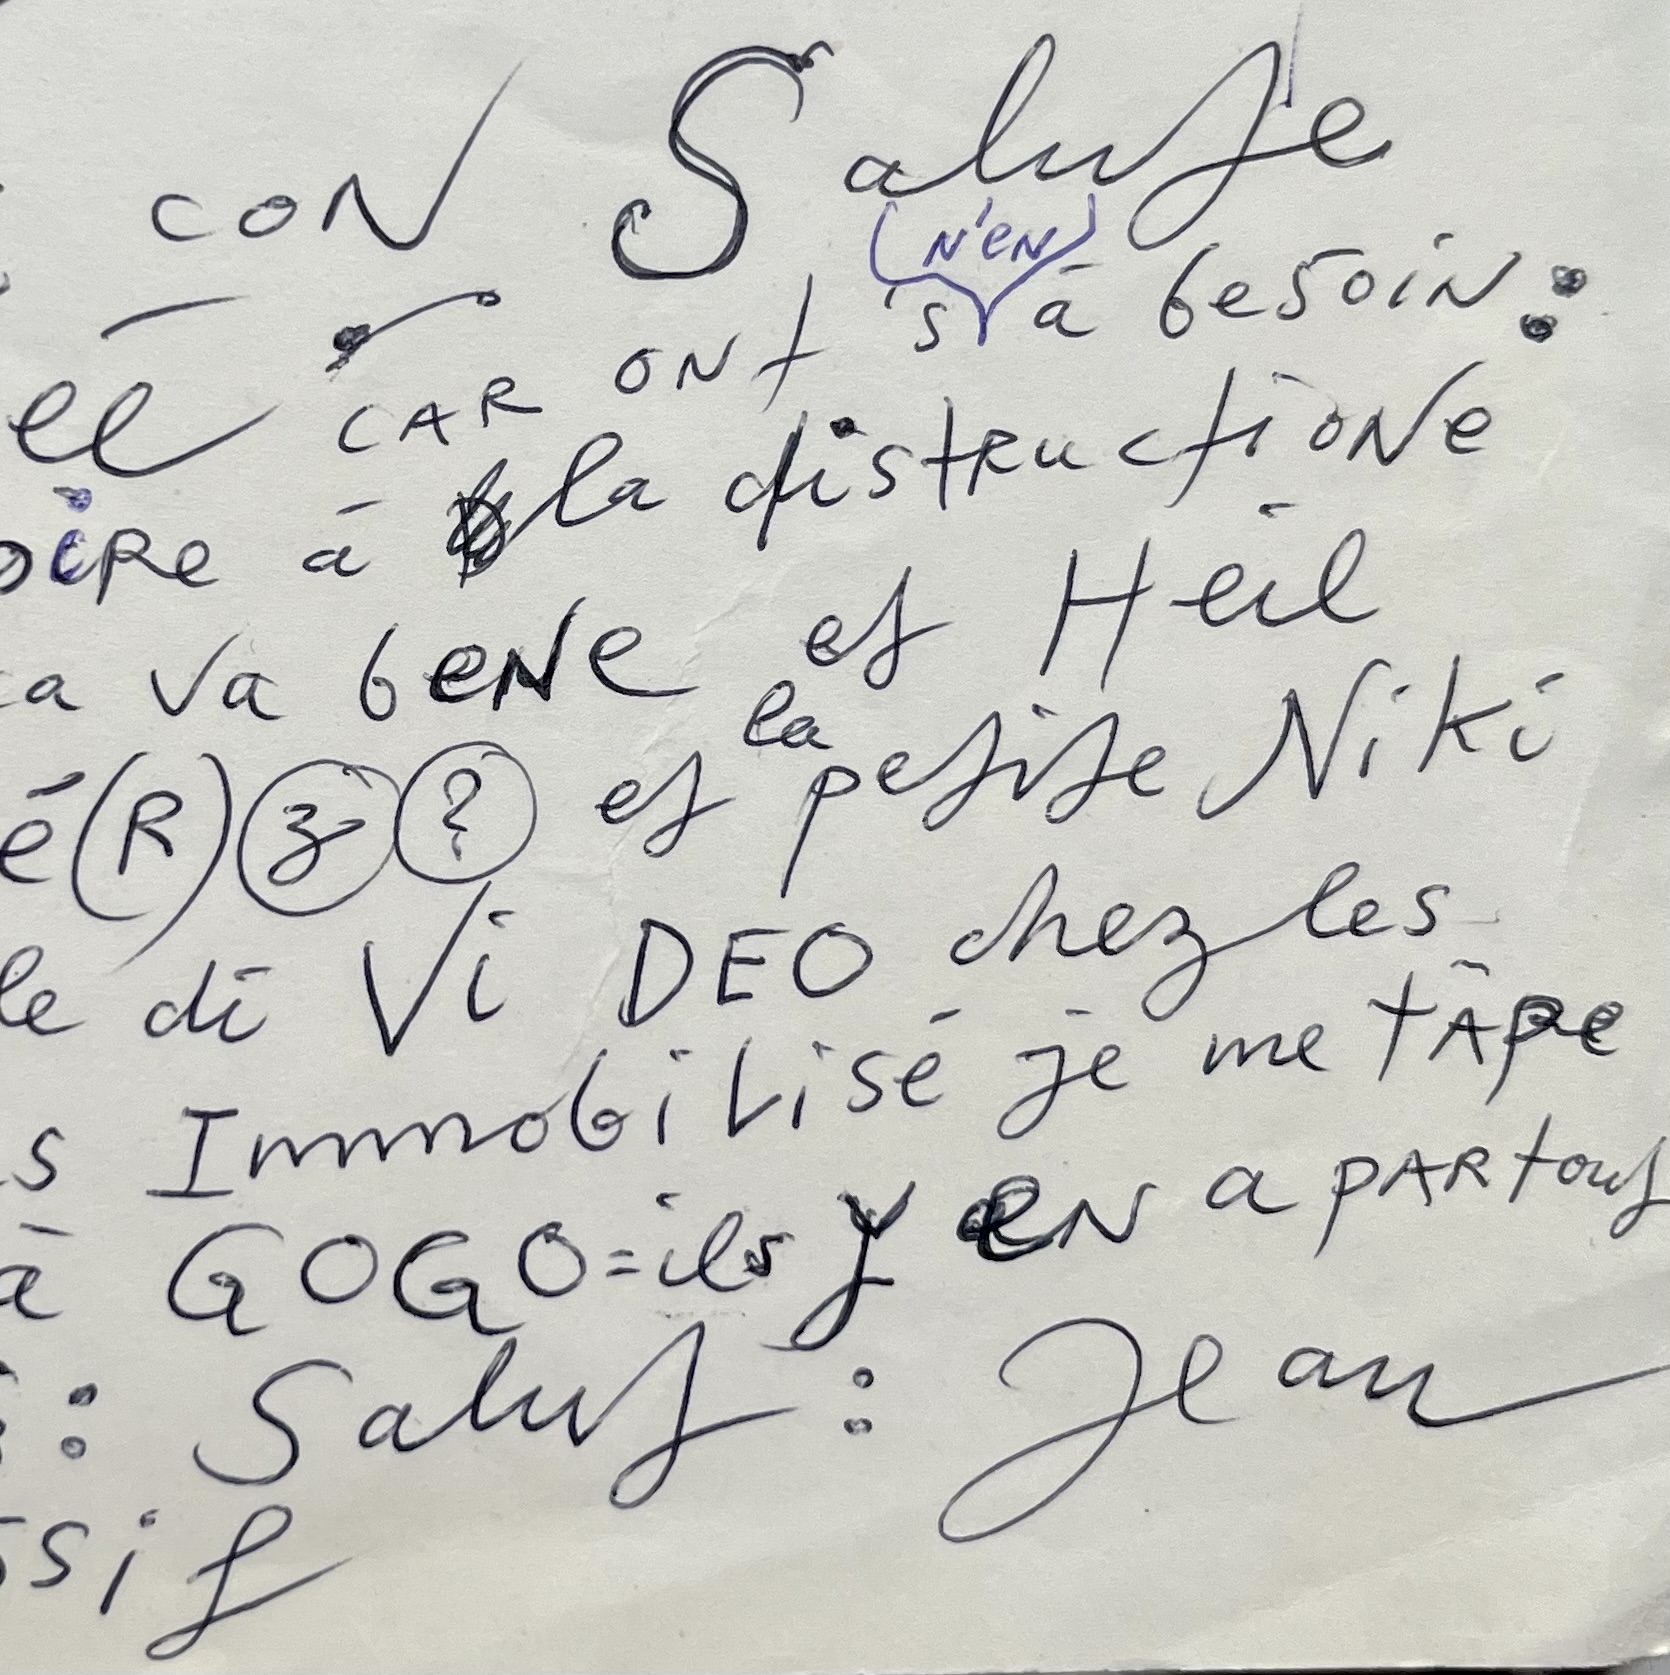 con Salute
(n'en)
car ont s'à besoin:
oire à la distructione
ca va bene et Heil
la
é (R) (z) (?) et petite Niki
le di Vi DEO chez les
s Immobilisé je me tâpe
à GOGO=ils y en a partout
: Salut : Jean
ssif